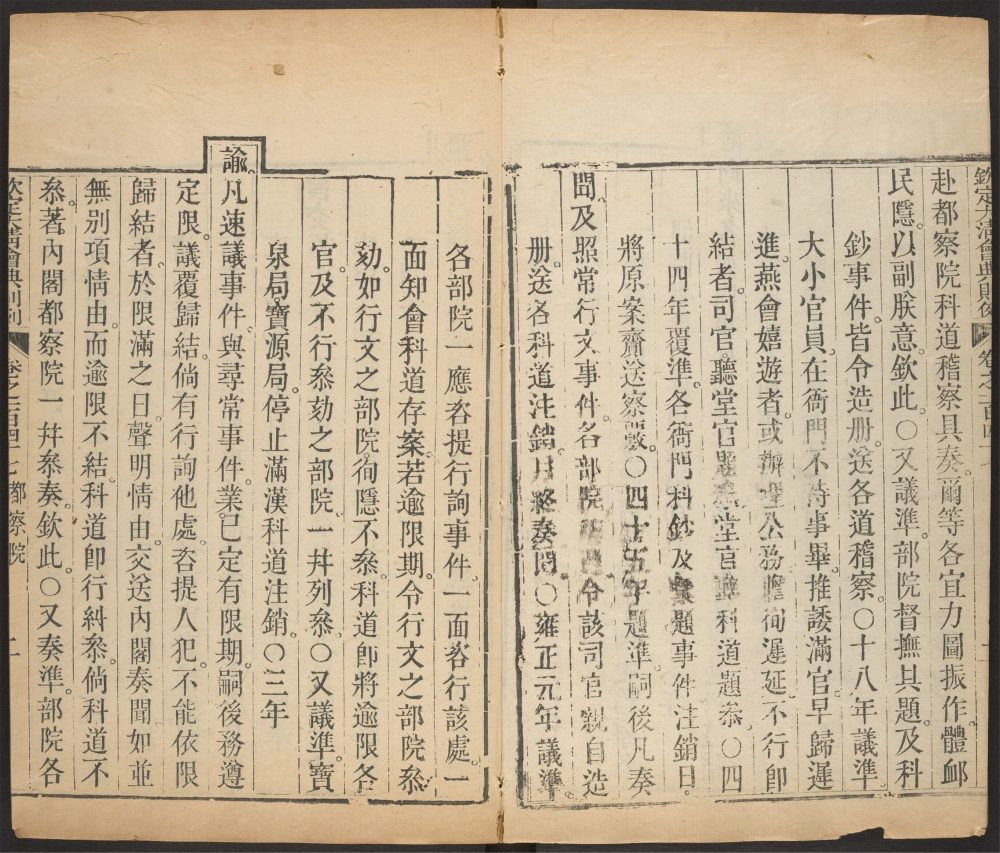 欽定大清會典則例 卷之一百四十七
赴都察院科道稽察具奏爾等各宜力圖振作體䘏
民隱以副朕意欽此○又議準部院督撫具題及科
鈔事件皆令造册送各道稽察○十八年議準
大小官員在衙門不待事畢推諉滿官早歸遲
進燕會嬉遊者或辦理公務瞻徇遲延不行卽
結者司官聽堂官題叅堂官聽科道題叅○四
十四年覆準各衙門科鈔及具題事件注銷日
將原案齎送察覈○四十五年題準嗣後凡奏
問及照常行文事件各部院 令該司官親自造
册送各科道注銷月終奏聞○雍正元年議準
各部院一應咨提行詢事件一面咨行該處一
面知會科道存案若逾限期令行文之部院叅
劾如行文之部院徇隱不叅科道卽將逾限各
官及不行叅劾之部院一幷列叅○又議準寶
泉局寶源局停止滿漢科道注銷○三年
諭凡速議事件與尋常事件業已定有限期嗣後務遵
定限議覆歸結倘有行詢他處咨提人犯不能依限
歸結者於限滿之日聲明情由交送內閣奏聞如並
無別項情由而逾限不結科道卽行糾叅倘科道不
叅著內閣都察院一幷叅奏欽此○又奏準部院各
欽定大清會典則例 卷之一百四十七 都察院